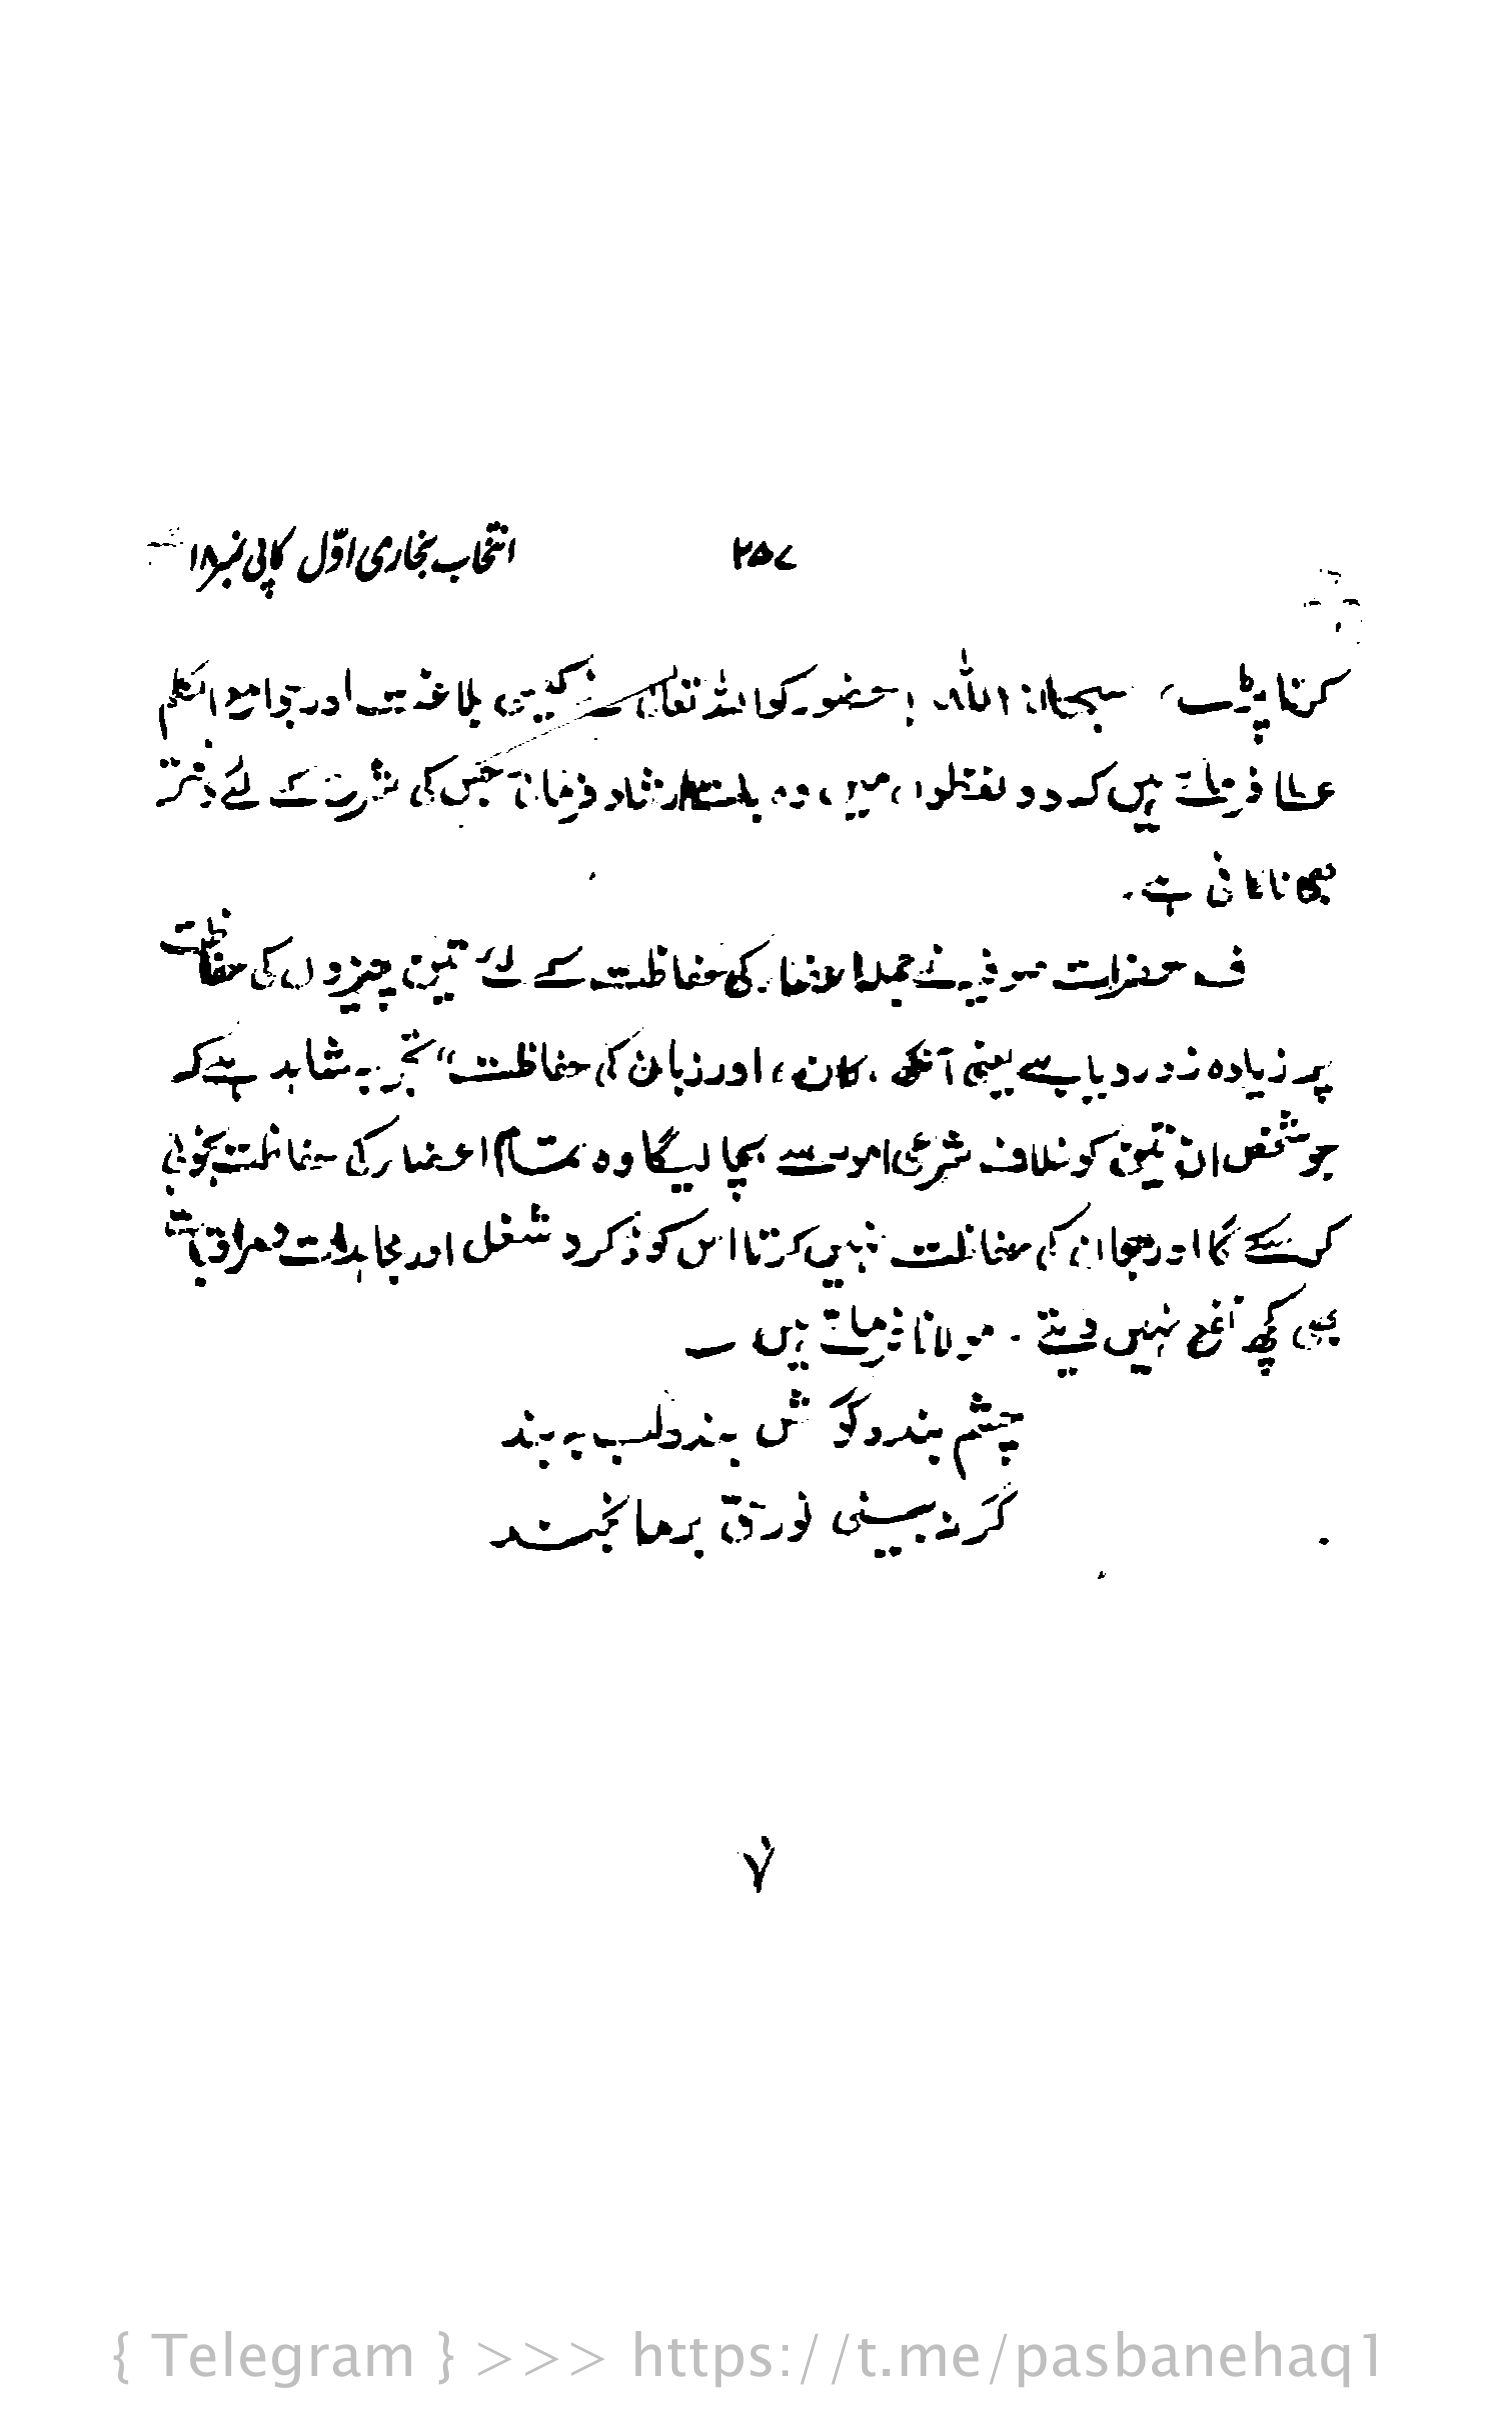 انتخاب بخاری اوّل کاپی نمبر ۱۸
۲۵۷
کرنا پڑے، سبحان اللہ! حضور کو اللہ تعالیٰ نے کیسی بلاغت اور جوامع الکلم
عطا فرمائے ہیں کہ دو لفظوں میں وہ بات ارشاد فرمائی جس کی شرح کے لئے دفتر
بھی ناکافی ہے۔
ف حضرات صوفیہ نے جملہ اعضاء کی حفاظت کے لئے تین چیزوں کی حفاظت
پر زیادہ زور دیا ہے یعنی آنکھ، کان، اور زبان کی حفاظت" تجربہ شاہد ہے کہ
جو شخص ان تین کو خلاف شرع امور سے بچا لیگا وہ تمام اعضاء کی حفاظت بخوبی
کر سکے گا اور جو ان کی حفاظت نہیں کرتا اس کو ذکر و شغل اور مجاہدات و مراقبات
بھی کچھ نفع نہیں دیتے ۔ مولانا فرماتے ہیں ؎
چشم بند و گوش بند و لب بہ بند
گر نہ بینی نور حق بر ما بخند
{ Telegram } >>> https://t.me/pasbanehaq1